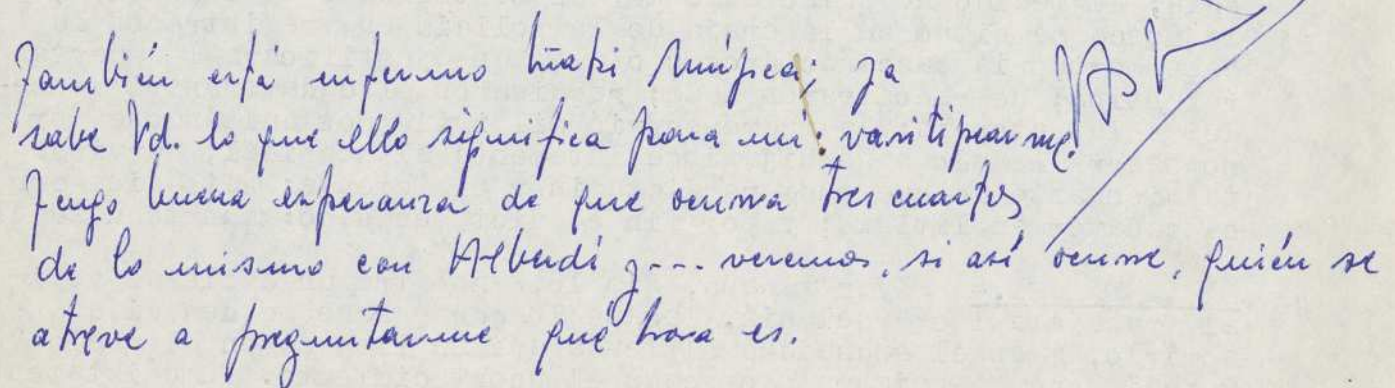 También está enfermo Iñaki Múgica; ya
sabe Vd. lo que ello significa para mí: varitipearme.
Tengo buena esperanza de que ocurra tres cuartos
de lo mismo con Alberdi y... veremos, si así ocurre, quién se
atreve a preguntarme qué hora es.